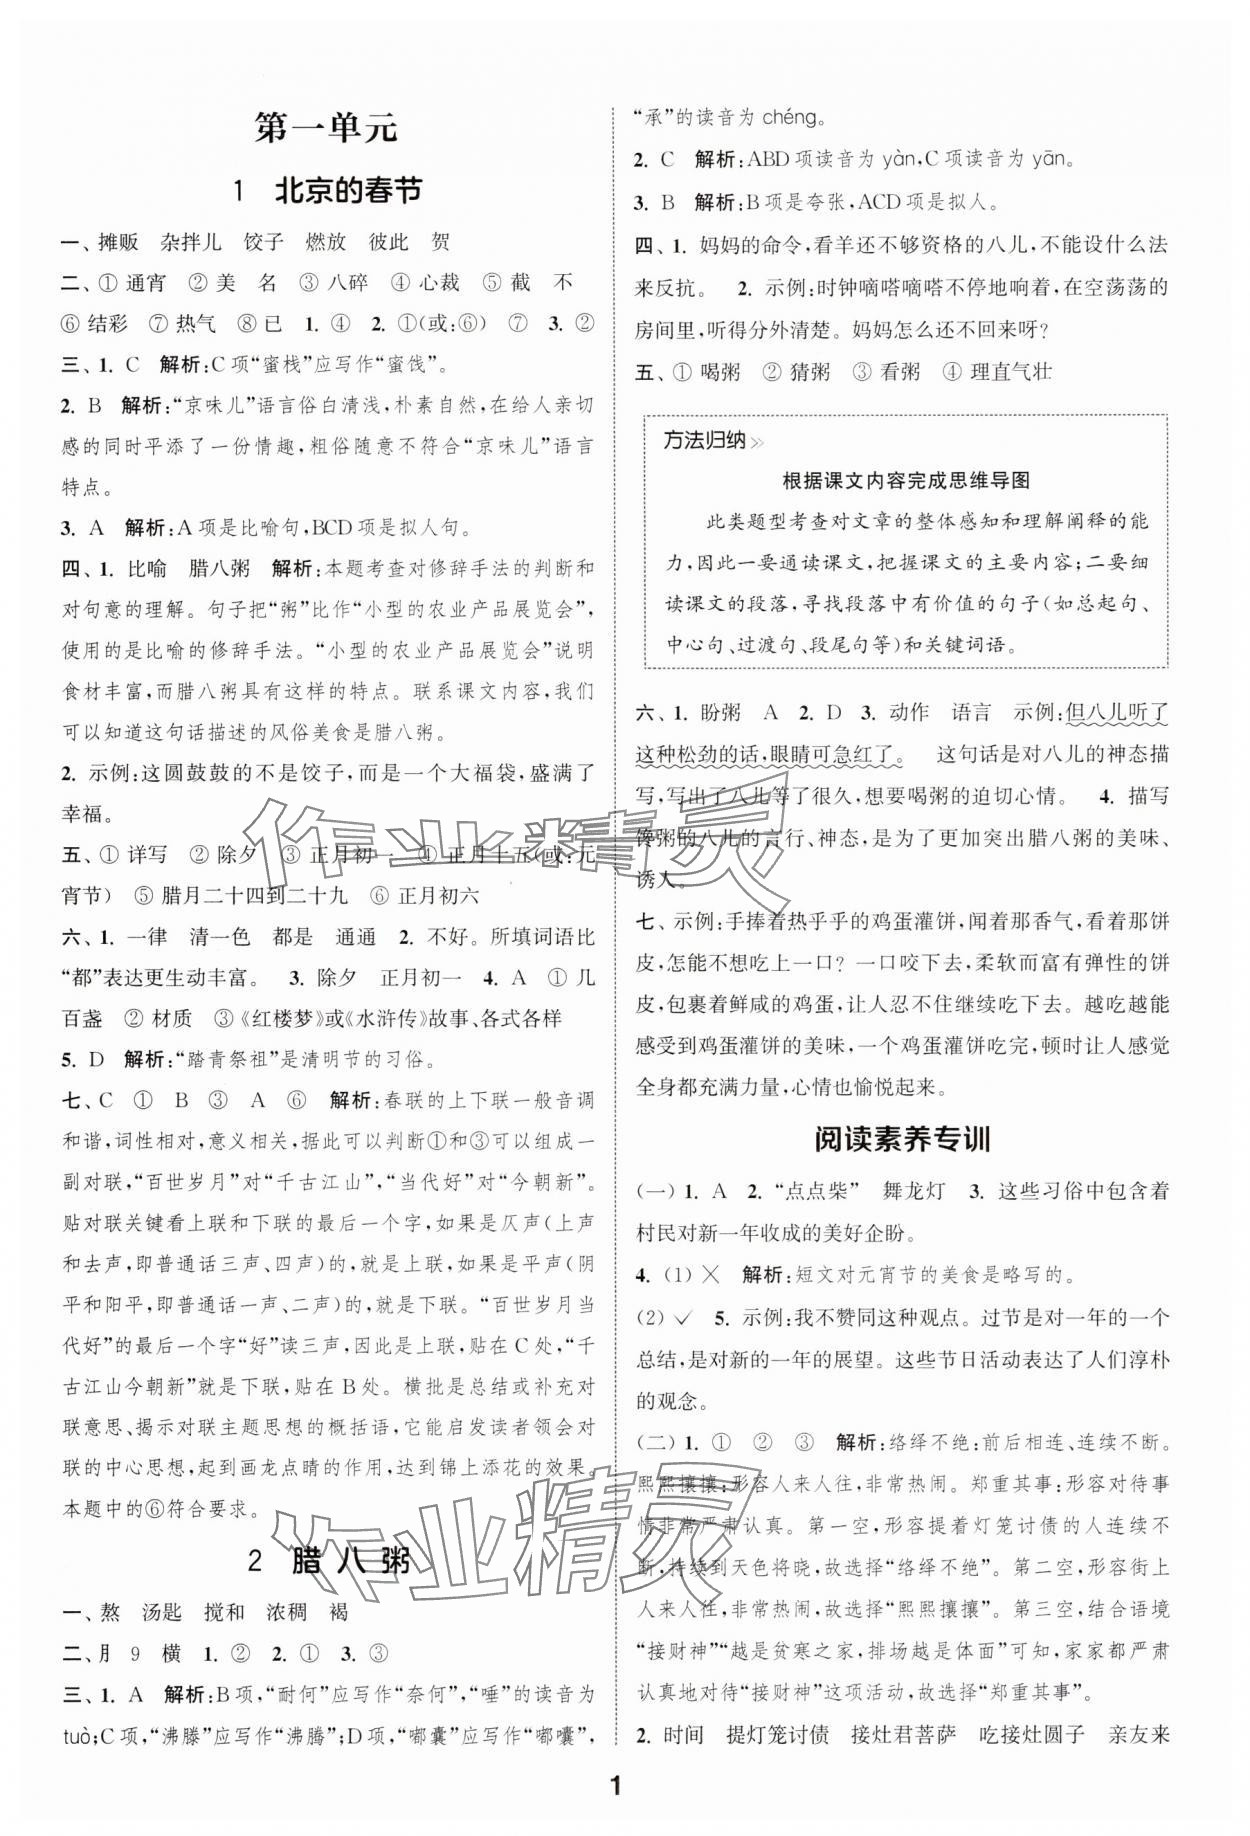 第一单元
1　北京的春节
一、摊贩　杂拌儿　饺子　燃放　彼此　贺
二、①通宵　②美　名　③八碎　④心裁　⑤截　不
⑥结彩　⑦热气　⑧已　1. ④　2. ①(或:⑥)　⑦　3. ②
三、1. C　解析:C项“蜜栈”应写作“蜜饯”。
2. B　解析:“京味儿”语言俗白清浅,朴素自然,在给人亲切
感的同时平添了一份情趣,粗俗随意不符合“京味儿”语言
特点。
3. A　解析:A项是比喻句,BCD项是拟人句。
四、1. 比喻　腊八粥　解析:本题考查对修辞手法的判断和
对句意的理解。句子把“粥”比作“小型的农业产品展览会”,
使用的是比喻的修辞手法。“小型的农业产品展览会”说明
食材丰富,而腊八粥具有这样的特点。联系课文内容,我们
可以知道这句话描述的风俗美食是腊八粥。
2. 示例:这圆鼓鼓的不是饺子,而是一个大福袋,盛满了
幸福。
五、①详写　②除夕　③正月初一　④正月十五(或:元
宵节)　⑤腊月二十四到二十九　⑥正月初六
六、1. 一律　清一色　都是　通通　2. 不好。所填词语比
“都”表达更生动丰富。　3. 除夕　正月初一　4. A　①几
百盏　②材质　③《红楼梦》或《水浒传》故事、各式各样
5. D　解析:“踏青祭祖”是清明节的习俗。
七、C　①　B　③　A　⑥　解析:春联的上下联一般音调
和谐,词性相对,意义相关,据此可以判断①和③可以组成一
副对联,“百世岁月”对“千古江山”,“当代好”对“今朝新”。
贴对联关键看上联和下联的最后一个字,如果是仄声(上声
和去声,即普通话三声、四声)的,就是上联,如果是平声(阴
平和阳平,即普通话一声、二声)的,就是下联。“百世岁月当
代好”的最后一个字“好”读三声,因此是上联,贴在C处,“千
古江山今朝新”就是下联,贴在B处。横批是总结或补充对
联意思、揭示对联主题思想的概括语,它能启发读者领会对
联的中心思想,起到画龙点睛的作用,达到锦上添花的效果。
本题中的⑥符合要求。
2　腊八粥
一、熬　汤匙　搅和　浓稠　褐
二、月　9　横　1. ②　2. ①　3. ③
三、1. A　解析:B项,“耐何”应写作“奈何”,“唾”的读音为
tuò;C项,“沸滕”应写作“沸腾”;D项,“嘟囊”应写作“嘟囔”,
“承”的读音为chéng。
2. C　解析:ABD项读音为yàn,C项读音为yān。
3. B　解析:B项是夸张,ACD项是拟人。
四、1. 妈妈的命令,看羊还不够资格的八儿,不能设什么法
来反抗。　2. 示例:时钟嘀嗒嘀嗒不停地响着,在空荡荡的
房间里,听得分外清楚。妈妈怎么还不回来呀?
五、①喝粥　②猜粥　③看粥　④理直气壮
方法归纳
根据课文内容完成思维导图
此类题型考查对文章的整体感知和理解阐释的能
力,因此一要通读课文,把握课文的主要内容;二要细
读课文的段落,寻找段落中有价值的句子(如总起句、
中心句、过渡句、段尾句等)和关键词语。
六、1. 盼粥　A　2. D　3. 动作　语言　示例:但八儿听了
这种松劲的话,眼睛可急红了。　这句话是对八儿的神态描
写,写出了八儿等了很久,想要喝粥的迫切心情。　4. 描写
馋粥的八儿的言行、神态,是为了更加突出腊八粥的美味、
诱人。
七、示例:手捧着热乎乎的鸡蛋灌饼,闻着那香气,看着那饼
皮,怎能不想吃上一口?一口咬下去,柔软而富有弹性的饼
皮,包裹着鲜咸的鸡蛋,让人忍不住继续吃下去。越吃越能
感受到鸡蛋灌饼的美味,一个鸡蛋灌饼吃完,顿时让人感觉
全身都充满力量,心情也愉悦起来。
阅读素养专训
(一)1. A　2. “点点柴”　舞龙灯　3. 这些习俗中包含着
村民对新一年收成的美好企盼。
4. (1)×　解析:短文对元宵节的美食是略写的。
(2)✓　5. 示例:我不赞同这种观点。过节是对一年的一个
总结,是对新的一年的展望。这些节日活动表达了人们淳朴
的观念。
(二)1. ①　②　③　解析:络绎不绝:前后相连、连续不断。
熙熙攘攘:形容人来人往,非常热闹。郑重其事:形容对待事
情非常严肃认真。第一空,形容提着灯笼讨债的人连续不
断,持续到天色将晓,故选择“络绎不绝”。第二空,形容街上
人来人往,非常热闹,故选择“熙熙攘攘”。第三空,结合语境
“接财神”“越是贫寒之家,排场越是体面”可知,家家都严肃
认真地对待“接财神”这项活动,故选择“郑重其事”。
2. 时间　提灯笼讨债　接灶君菩萨　吃接灶圆子　亲友来
作业精灵
作业精灵
1